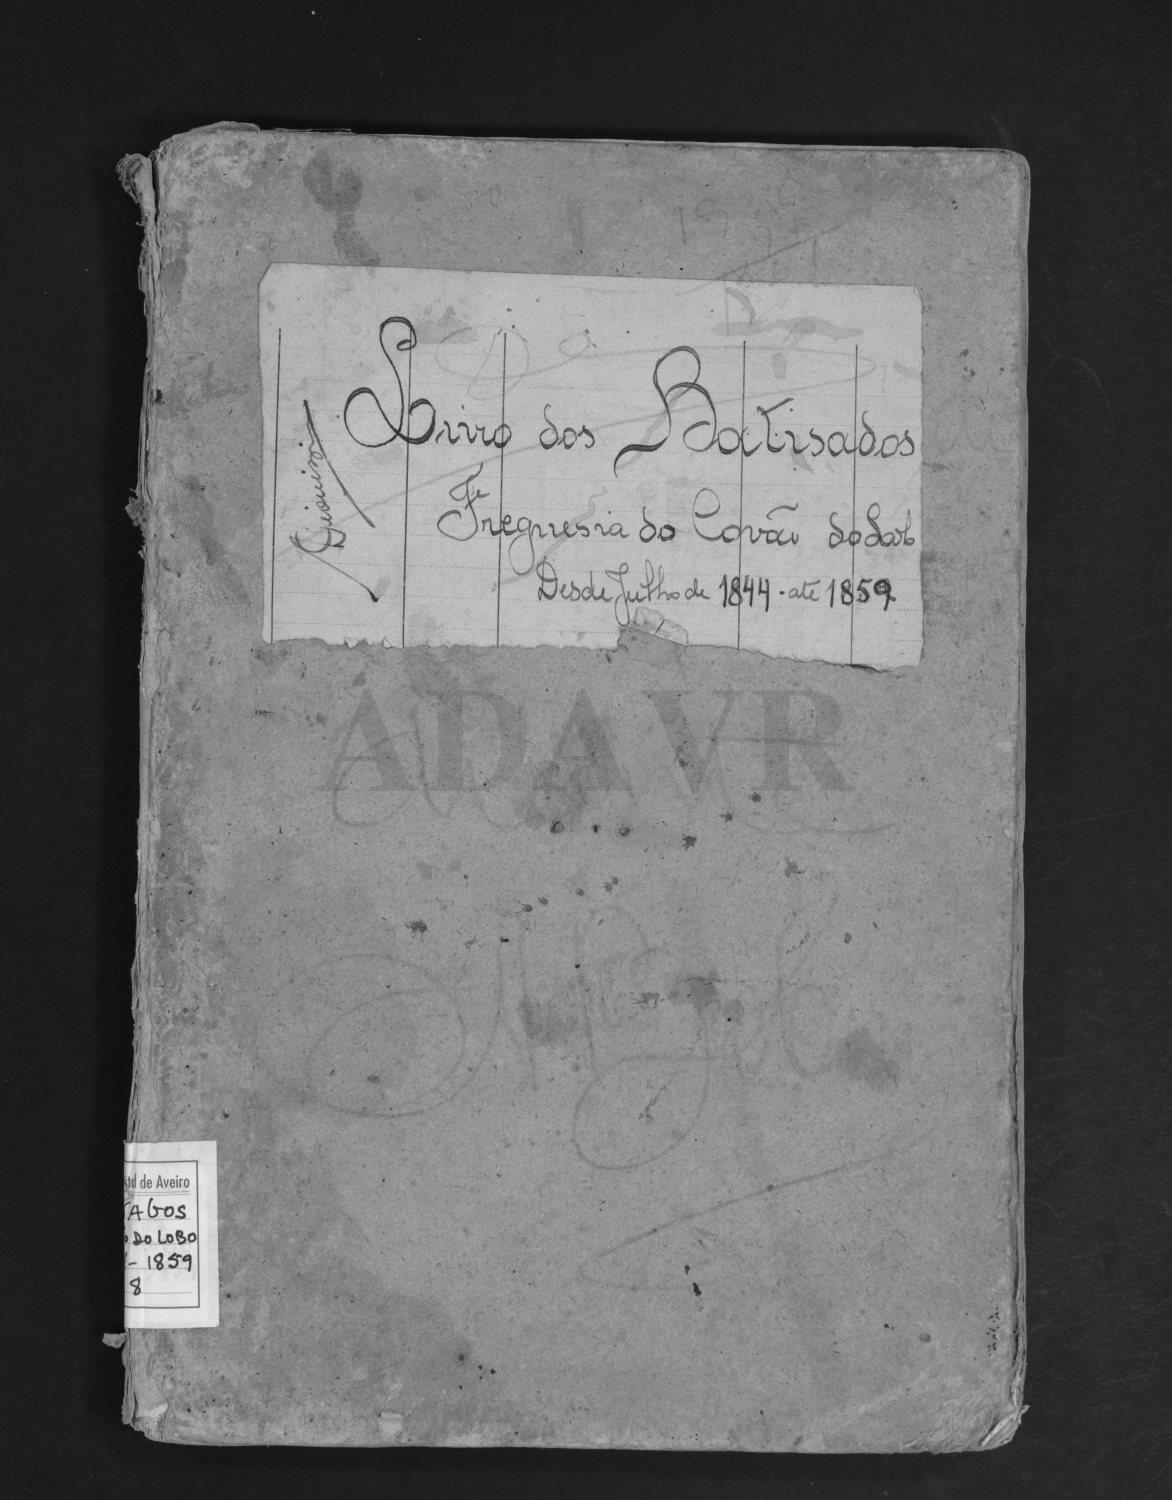 Livro dos Batisados
Freguesia do Covão do Lob
Desde Julho de 1844 - até 1859
ADAVR
tal de Aveiro
TAGOS
O DO LOBO
- 1859
8